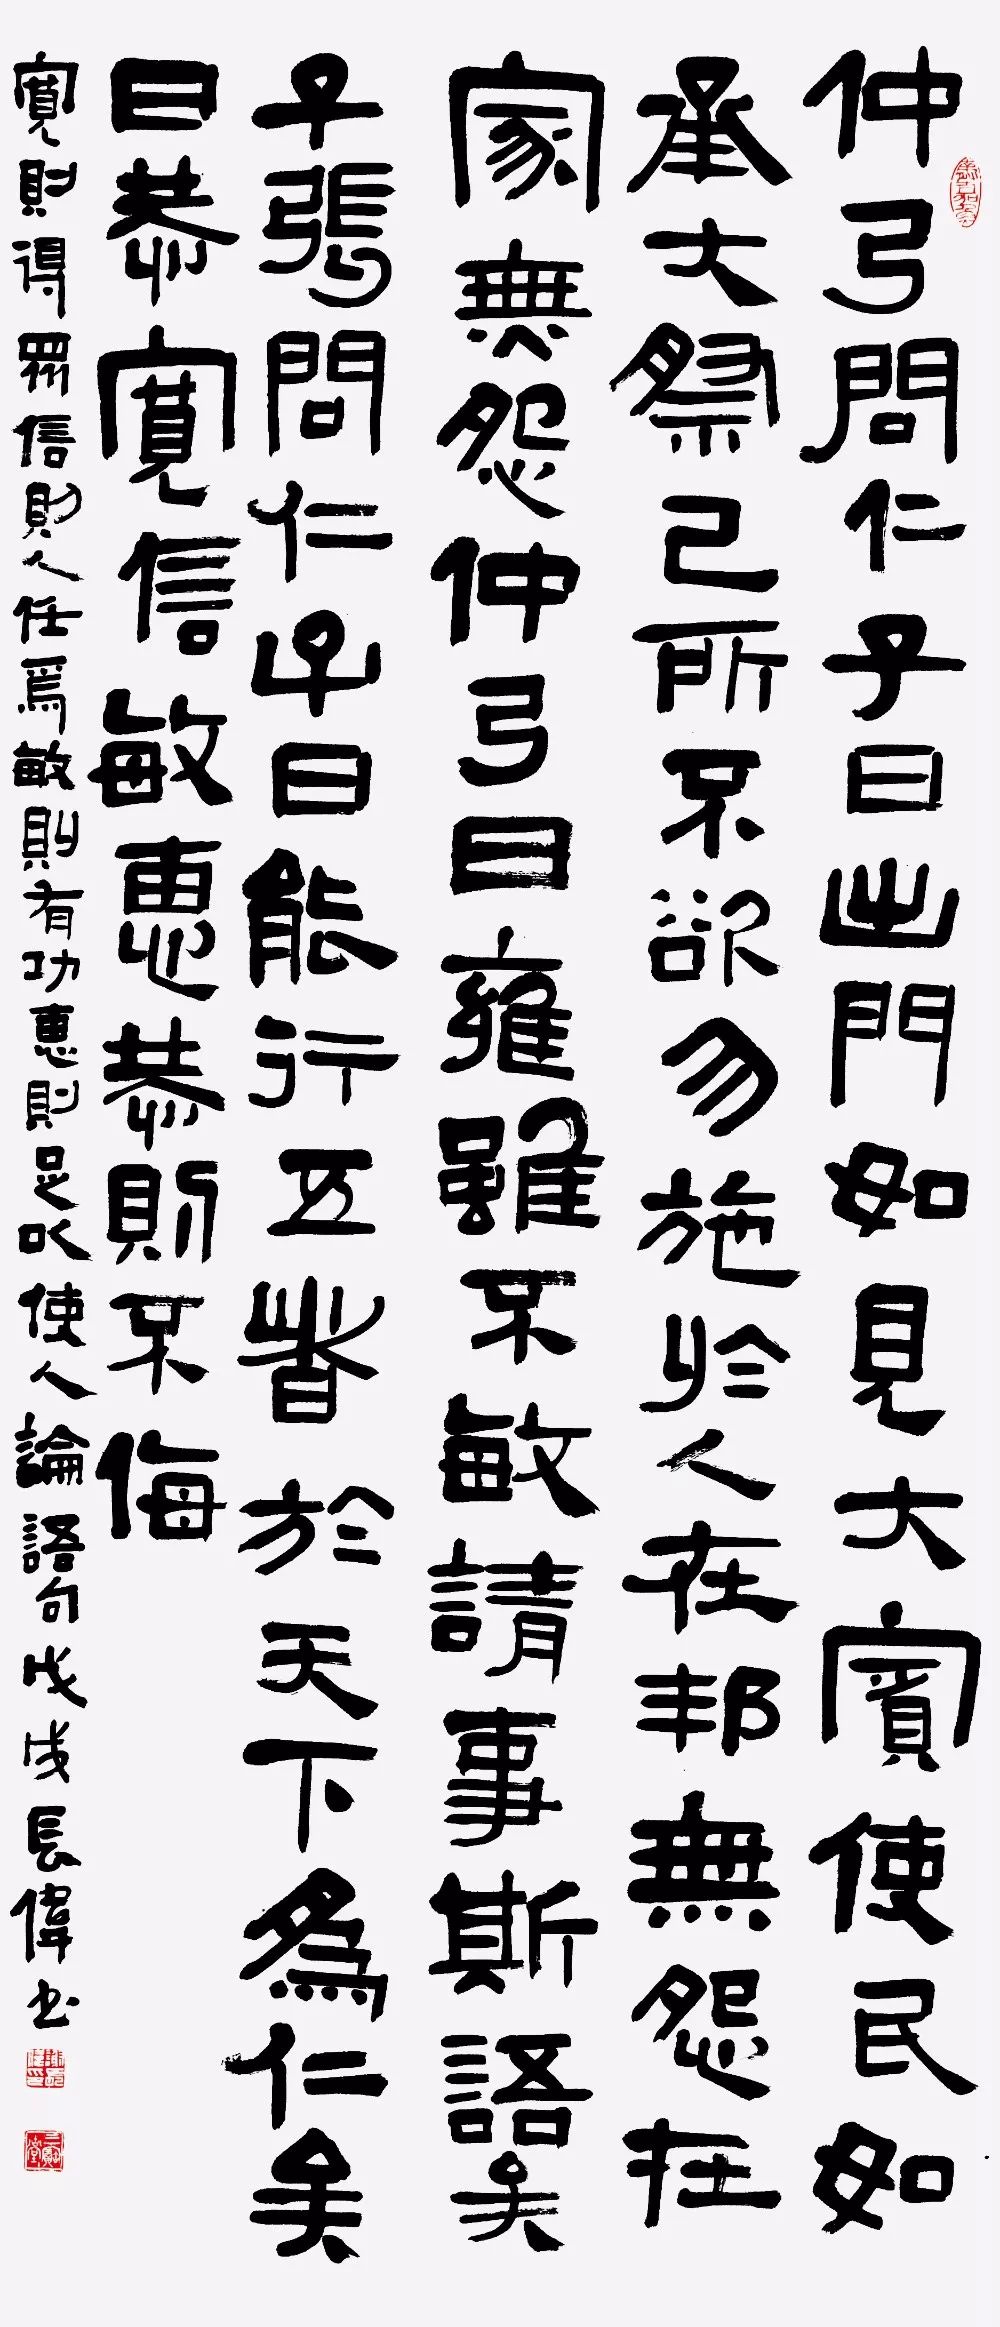 仲弓問仁子曰出門如見大賓使民如
承大祭己所不欲勿施於人在邦無怨在
家無怨仲弓曰雍雖不敏請事斯語矣
子張問仁子曰能行五者於天下爲仁矣
曰恭寬信敏惠恭則不侮
寬則得眾信則人任焉敏則有功惠則足以使人論語句戊戌長偉书